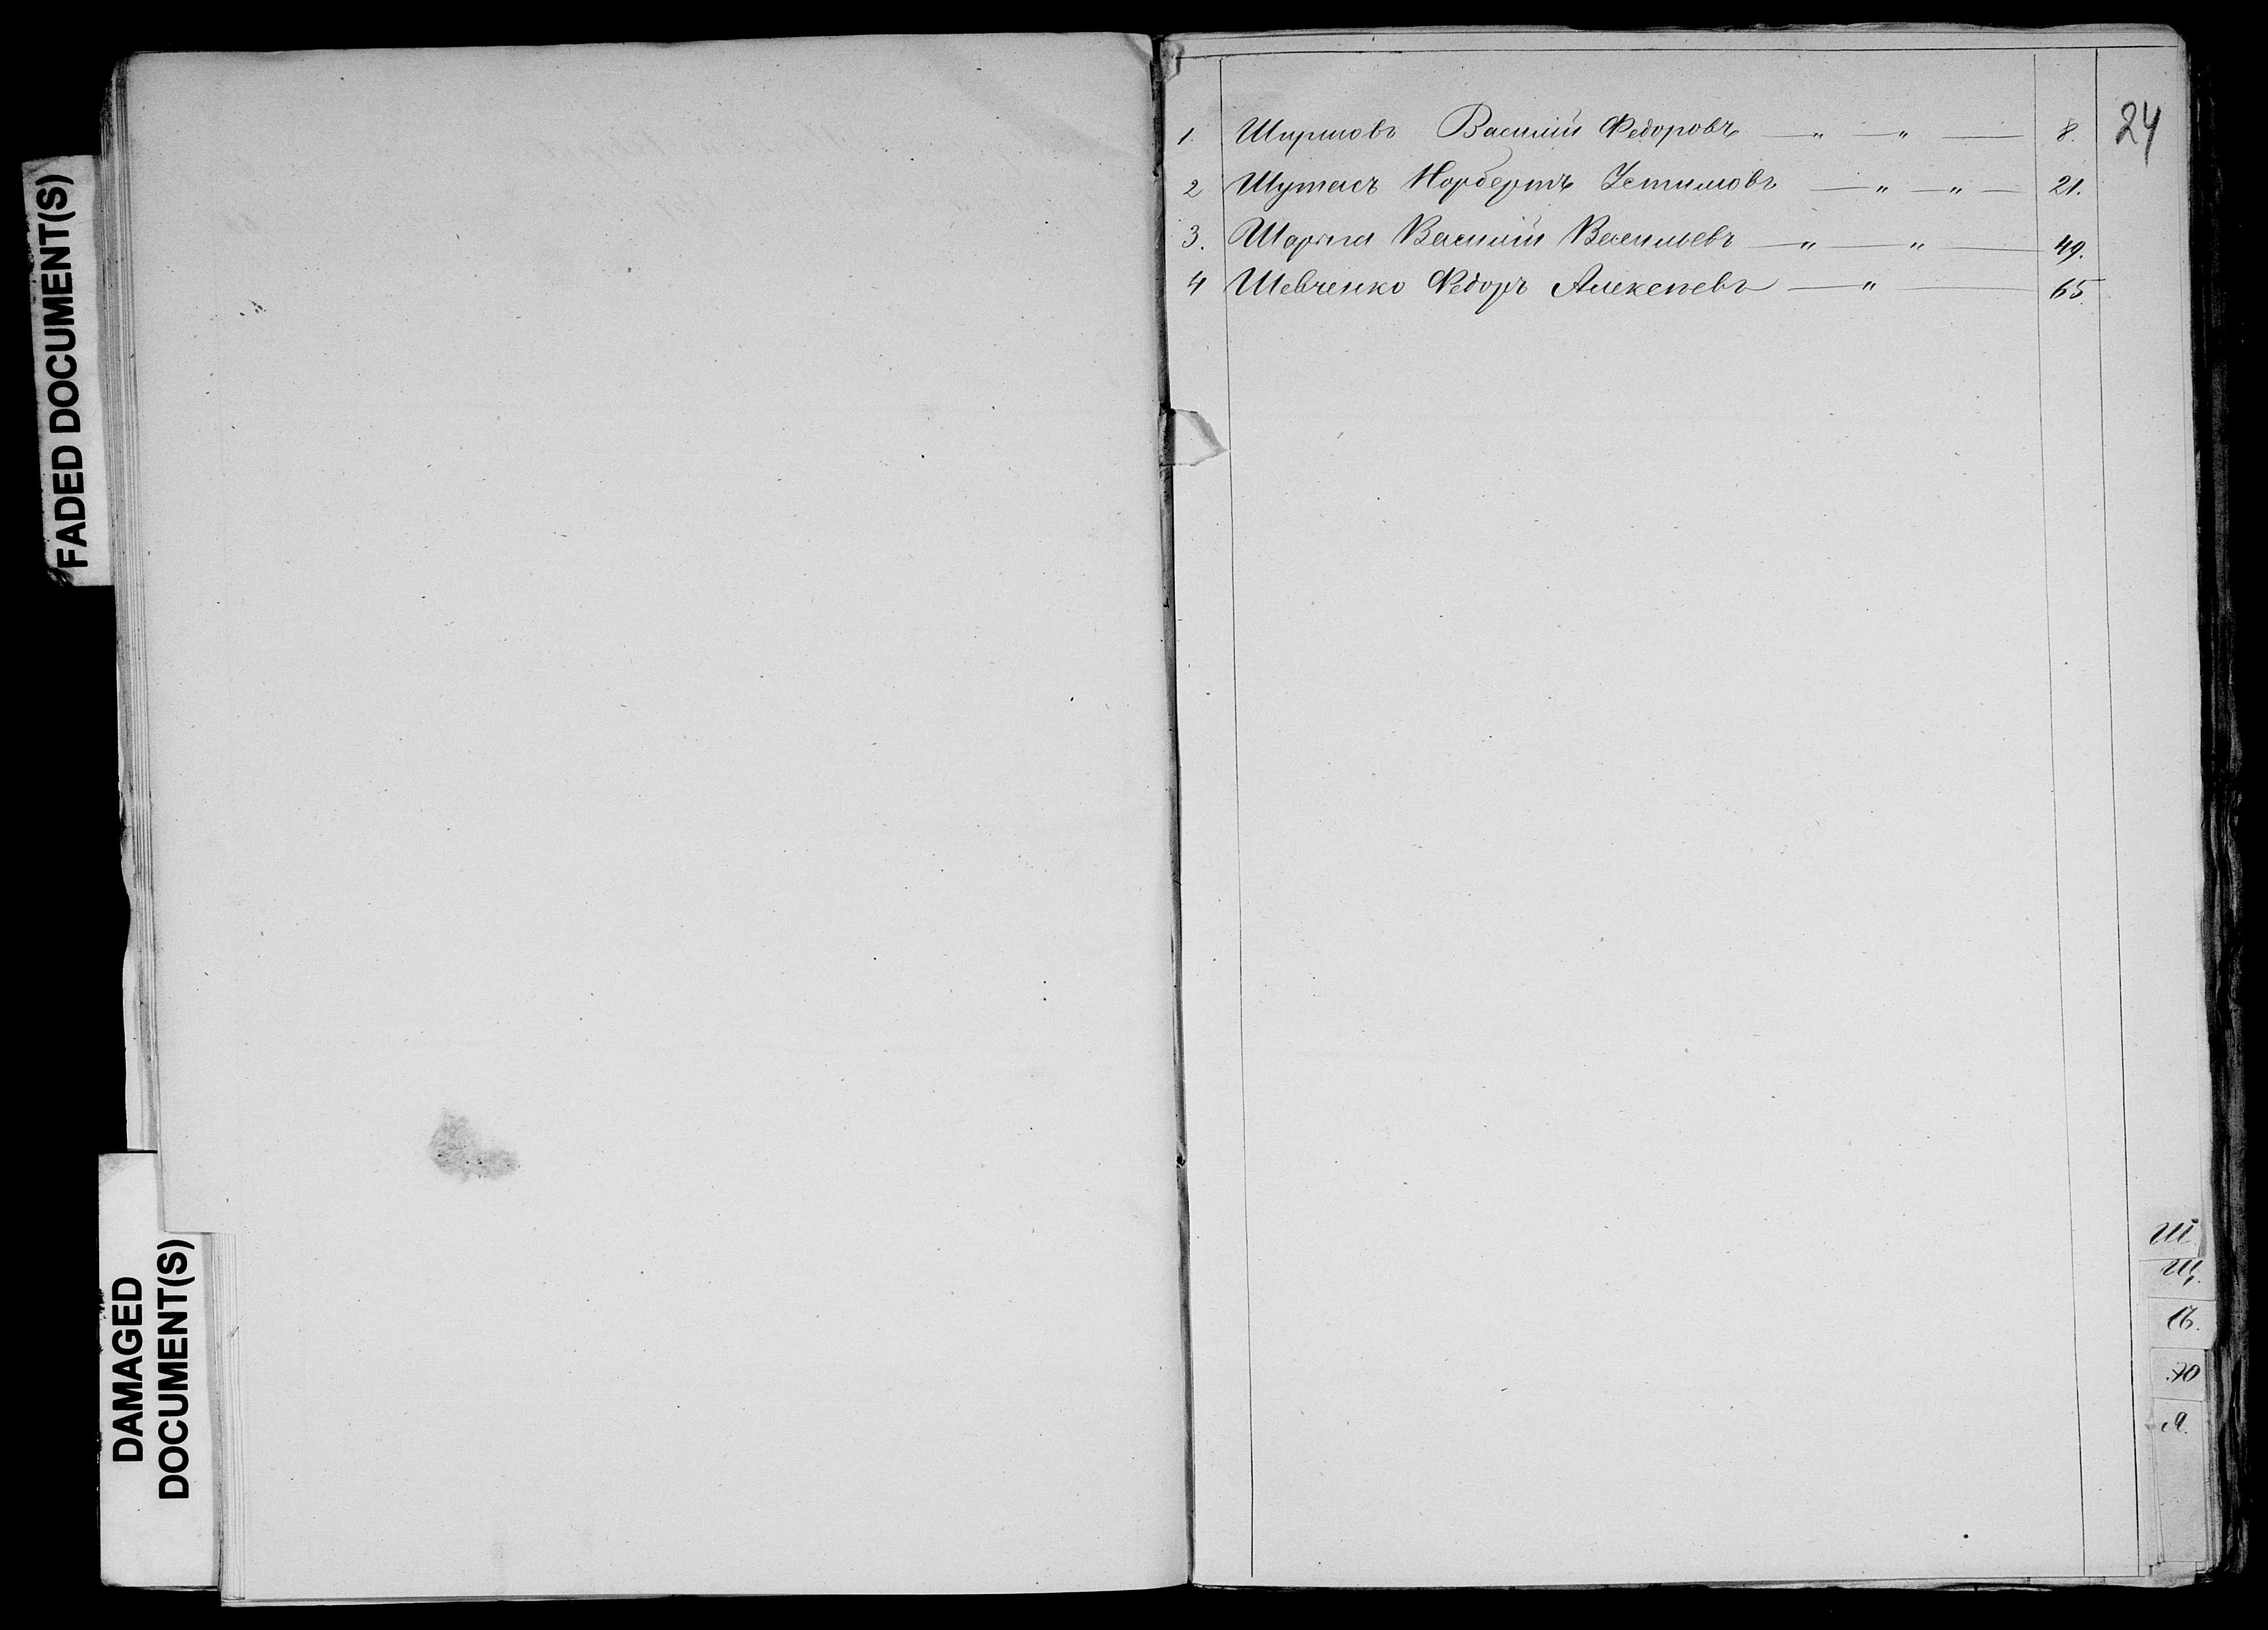 FADED DOCUMENT(S)
DAMAGED
DOCUMENT(S)
24
1. Шириновъ Василій Федоровъ — „ — „ — 8.
2 Шутасъ Норбертъ Устиновъ — „ — „ — 21.
3. Шарыга Василій Васильевъ — „ — „ — 49.
4 Шевченко Федоръ Алексѣевъ — „ — 65.
Ш
Щ.
Ѣ.
Ю
Я.